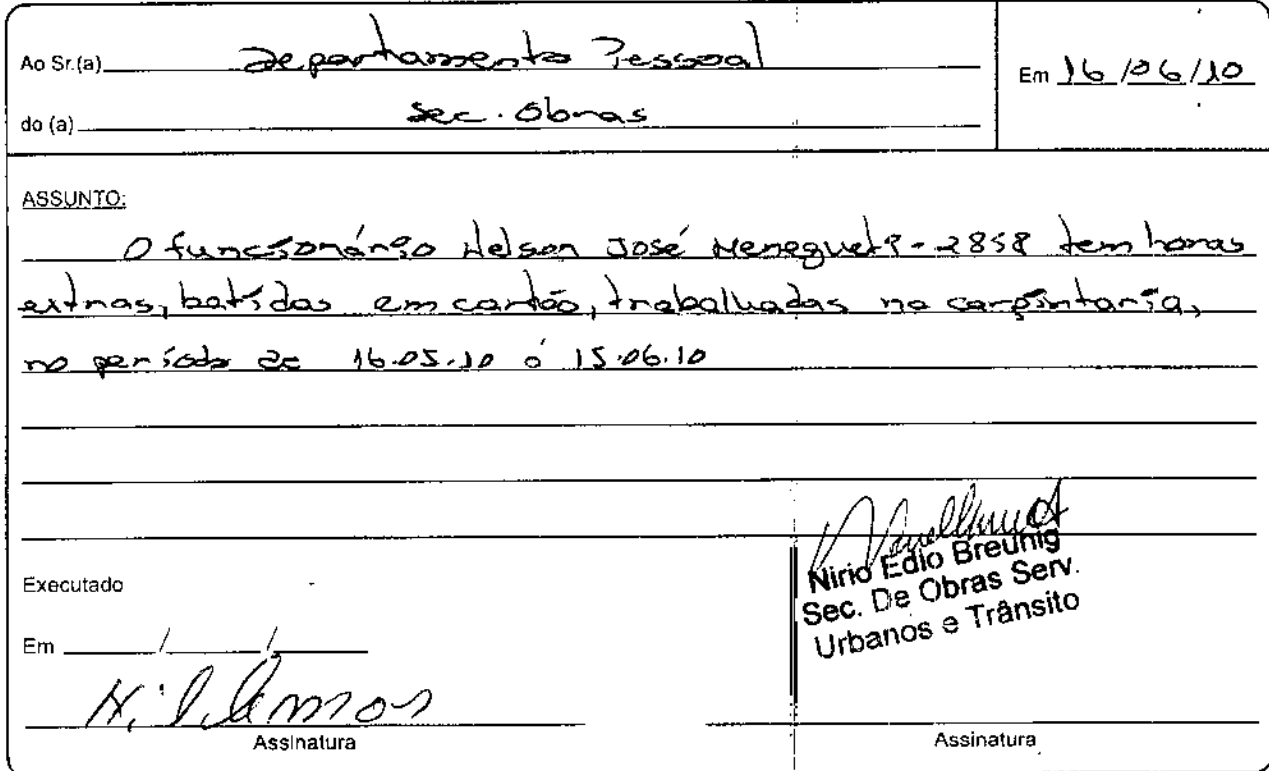 Ao Sr.(a) Departamento Pessoal
Em 16/06/10
do (a) Sec. Obras
ASSUNTO:
O funcionário Nelson José Menegueti - 2858 tem horas
extras, batidas em cartão, trabalhadas na carpintaria,
no período de 16.05.10 á 15.06.10
Nirio Edio Breunig
Sec. De Obras Serv.
Urbanos e Trânsito
Executado
Em / /
Assinatura
Assinatura